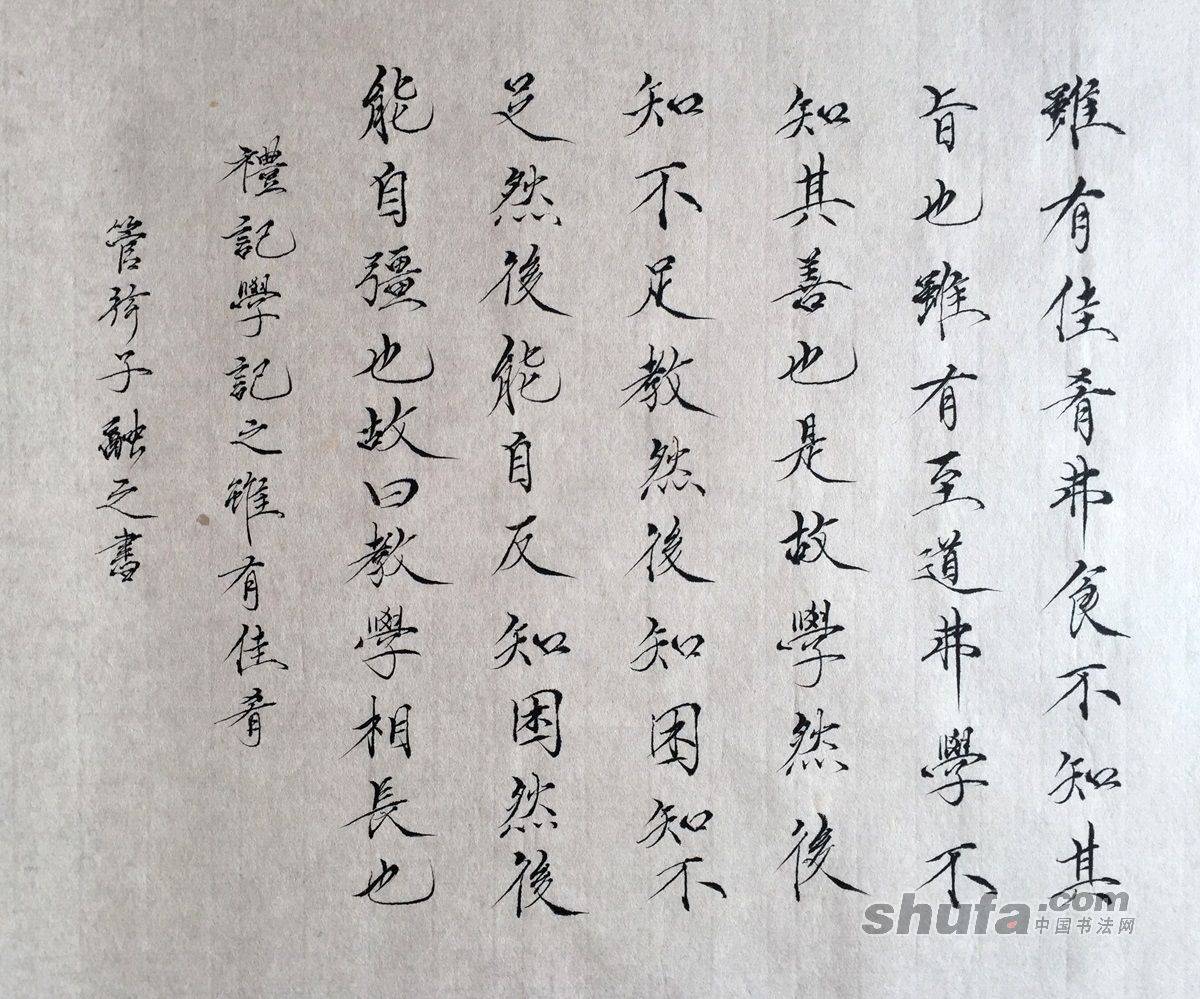 雖有佳肴弗食不知其
旨也雖有至道弗學不
知其善也是故學然後
知不足教然後知困知不
足然後能自反知困然後
能自彊也故曰教學相長也
禮記學記之雖有佳肴
管 子融之書
shufa.com
中国书法网